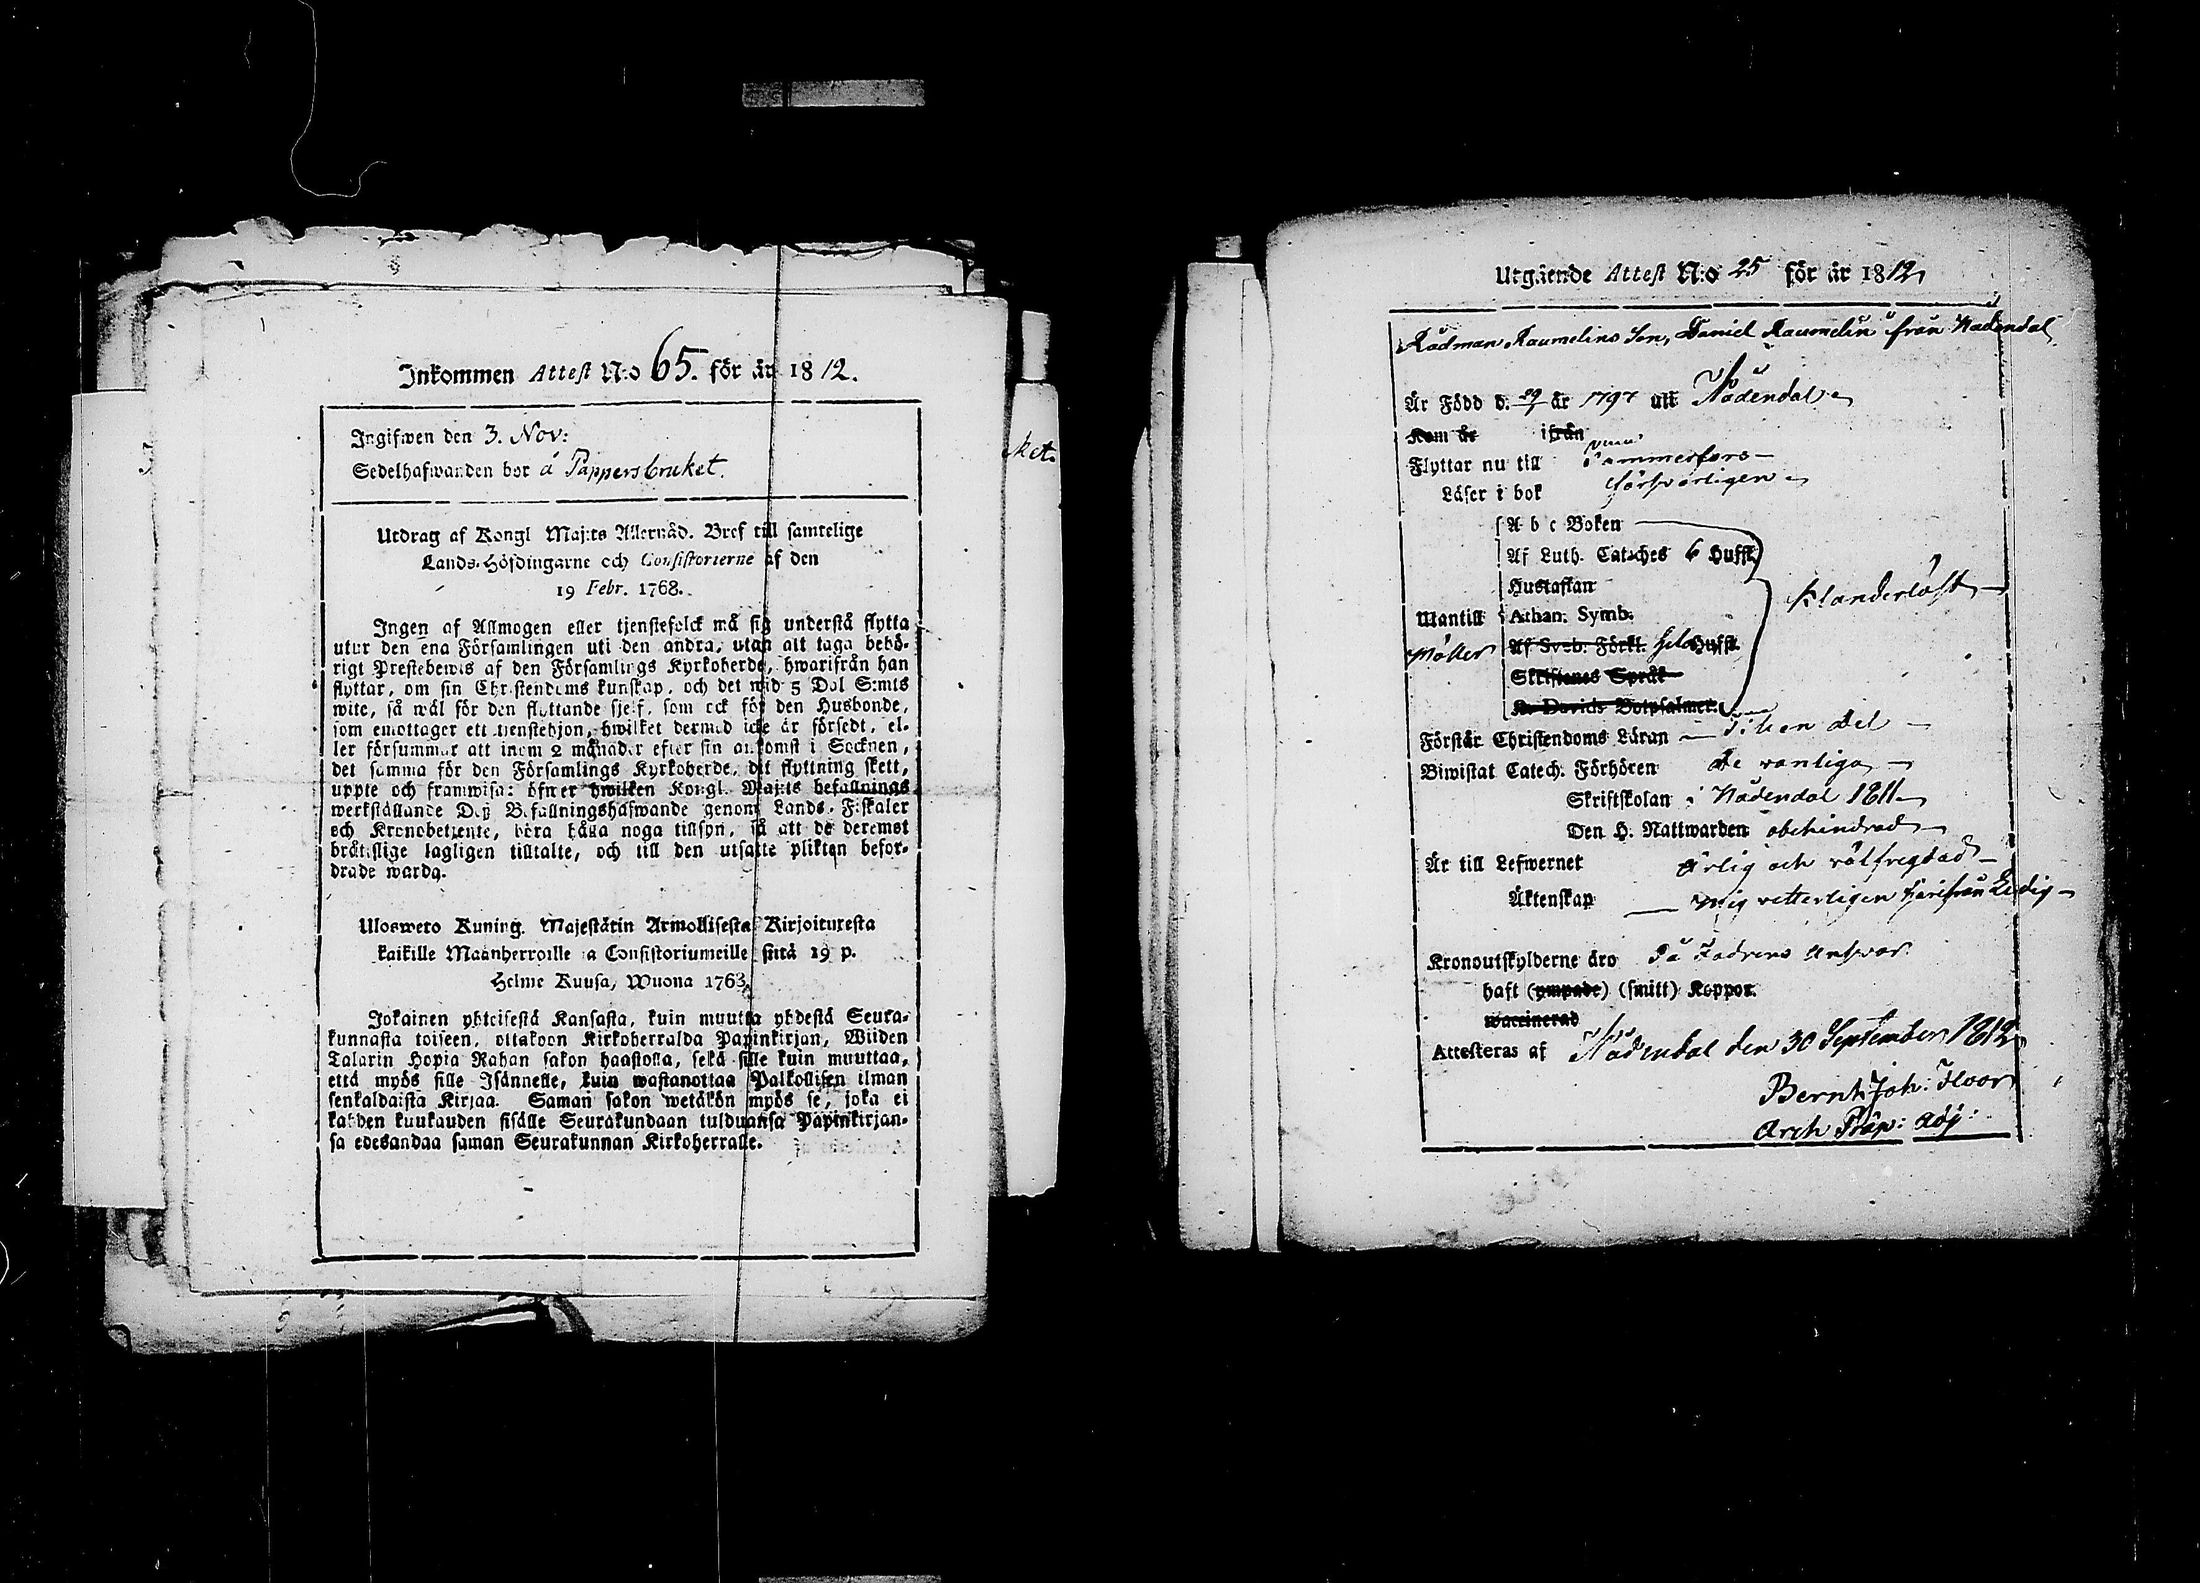 Inkommen Attest N:o 65. för år 1812.
Ingifwen den 3. Nov:
Sedelhafwanden bor å Pappersbruket.
Utdrag af Kongl Maj:ts Allernåd. Bref till samtelige
Lands-Höfdingarne och Consistorierne af den
19 Febr. 1768.
Ingen af Allmogen eller tjenstefolck må sig understå flytta
utur den ena Församlingen uti den andra, utan att taga behö-
rigt Prestebewis af den Församlings Kyrkoherde, hwarifrån han
flyttar, om sin Christendoms kunskap, och det wid 5 Dal S:mts
wite, så wäl för den flyttande sjelf, som ock för den Husbonde,
som emottager ett tjenstehjon, hwilket dermed icke är försedt, el-
ler försummar att inom 2 månader efter sin ankomst i Socknen,
det samma för den Församlings Kyrkoherde, dit flyttning skett,
uppte och framwisa: öfwer hwilken Kongl. Maj:ts befallnings
werkställande Deß Befallningshafwande genom Lands-Fiskaler
och Kronobetjente, böra hålla noga tillsyn, så att de deremot
bråtslige lagligen tilltalte, och till den utsatte plikten befor-
drade warda.
Ulosweto Kuning. Majestätin Armollisesta Kirjoituxesta
kaikille Maanherroille ja Consistoriumeille siitä 19 p.
Helme Kuusa, Wuona 1768.
Jokainen yhteisestä Kansasta, kuin muutta yhdestä Seura-
kunnasta toiseen, ottakoon Kirkoherralda Papinkirjan, Wiiden
Talarin Hopia Rahan sakon haastolla, sekä sille kuin muuttaa,
että myös sille Isännelle, kuin wastanottaa Palkollisen ilman
senkaldaista Kirjaa. Saman sakon wetäkön myös se, joka ei
kahden kuukauden sisälle Seurakundaan tulduansa Papinkirjan-
sa edesandaa saman Seurakunnan Kirkoherralle.
ket.
Utgående Attest N:o 25 för år 1812
Rådman Raumelins Son, Daniel Raumelin från Nådendal
Är Född d. 29/1 år 1797 uti Nådendal
Kom år ifrån
Flyttar nu till Tammerfors
Läser i bok försvarligen
A b c Boken
Af Luth. Cataches 6 Hufst.
Hustaflan
Mantill Athan: Symb.
Möller Af Sveb. Förkl. Hufst.
Skriftenes Språk
K. Davids Botpsalmer.
Klanderlöst
Förstår Christendoms Läran Till en del
Biwistat Catech. Förhören de vanliga
Skriftskolan i Nådendal 1811
Den H. Nattwarden obehindrad
Är till Lefwernet ärlig och välfregdad
Äktenskap mig vetterligen härifrån Ledig
Kronoutskylderne äro På Fadrens ansvar.
haft (ympade) (smitt) Koppor.
waccinerad
Attesteras af Nådendal den 30 September 1812
Bernh: Joh:
Arch Præp: Adj: